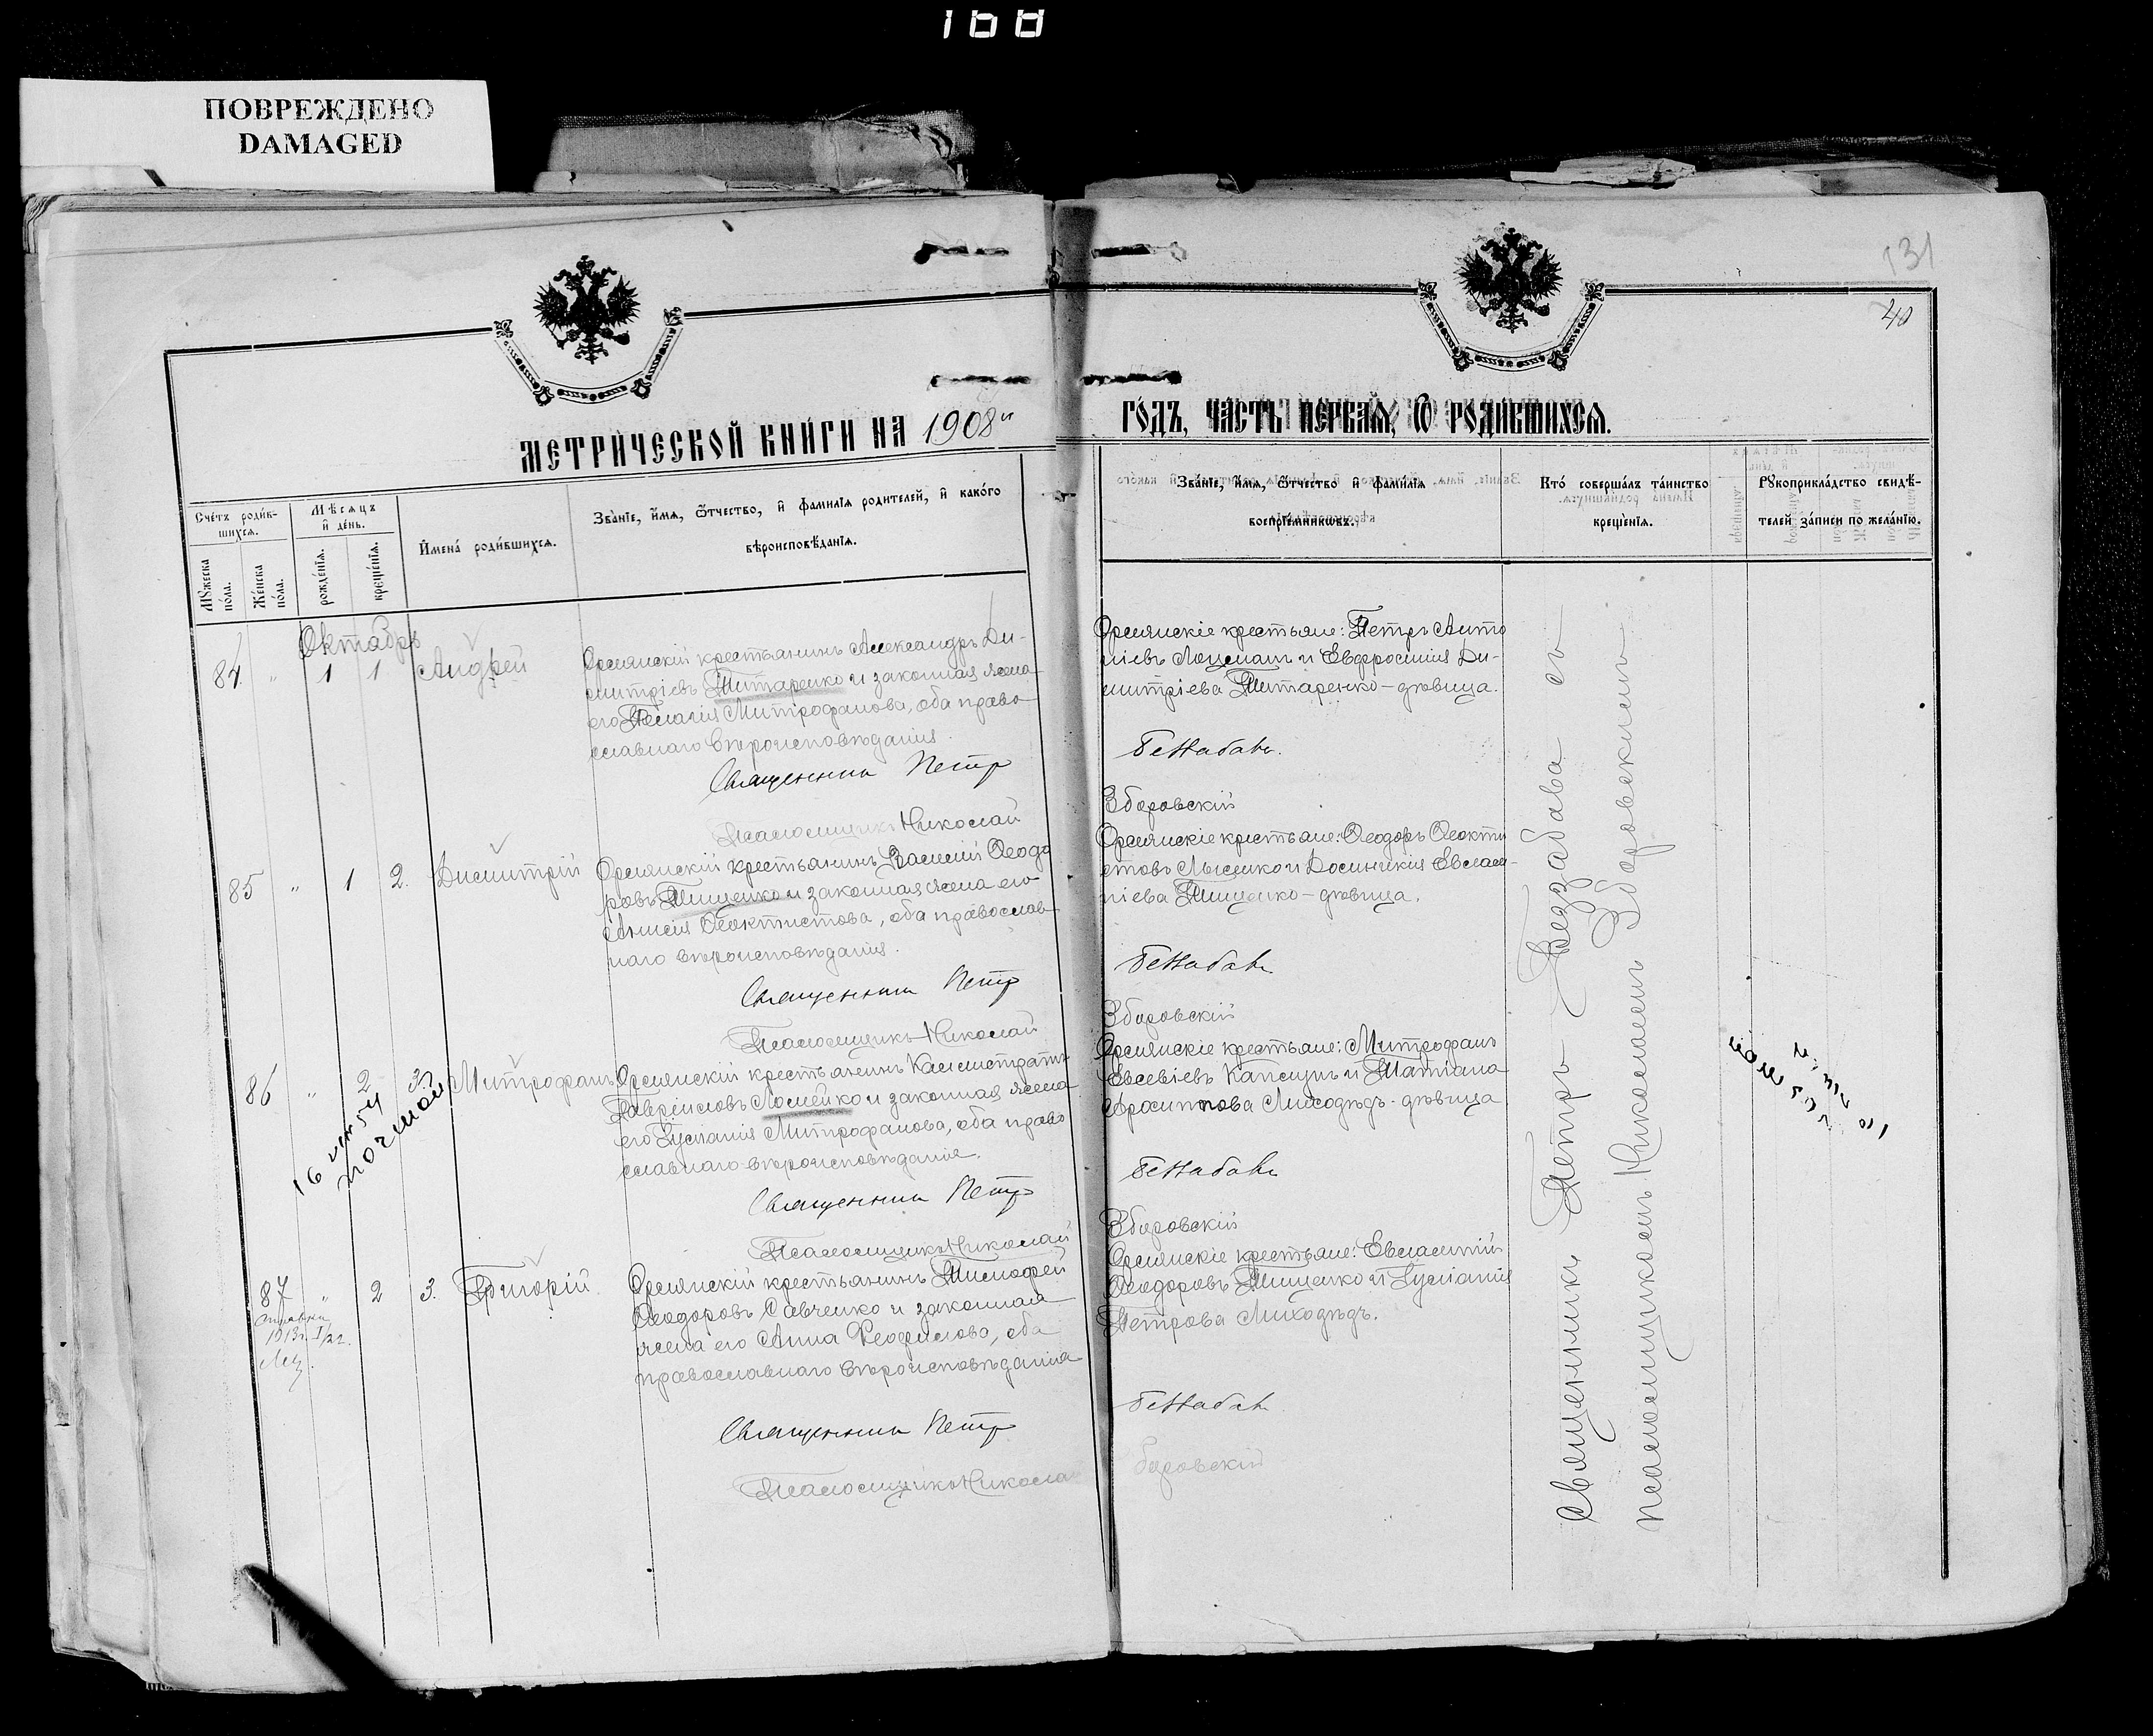 168
ПОВРЕЖДЕНО
DAMAGED
131
40
МЕТРИЧЕСКОЙ КНИГИ НА 1908й
ГОДЪ, ЧАСТЬ ПЕРВАЯ, Ѡ РОДИВШИХСЯ.
Счетъ родив-
шихся.
Мѣсяцъ
и день.
Мужеска
пола.
Женска
пола.
рожденія.
крещенія.
Имена родившихся.
Званіе, имя, отчество, и фамилія родителей, и какого
вѣроисповѣданія.
Званіе, имя, отчество и фамилія
воспріемниковъ.
Кто совершалъ таинство
крещенія.
Рукоприкладство свидѣ-
телей записи по желанію.
Октябрь
84. " 1 1 Андрей
Орлянскій крестьянинъ Александръ Ди-
митріевъ Титаренко и законная жена
его Пелагія Митрофанова, оба право-
славнаго вѣроисповѣданія.
Священникъ Петръ
Псаломщикъ Николай
Орлянскіе крестьяне: Петръ Анто
ніевъ Лоцманъ и Евфросинія Ди-
митріева Титаренко - дѣвица.
Беззабава.
Зборовскій
85 " 1 2. Димитрій
Орлянскій крестьянинъ Василій Ѳеодо
ровъ Тищенко и законная жена его
Анисія Ѳеоктистова, оба православ-
наго вѣроисповѣданія.
Священникъ Петръ
Псаломщикъ Николай
Орлянскіе крестьяне: Ѳеодоръ Ѳеокти
стовъ Лысенко и Домникія Евлам-
піева Тищенко - дѣвица.
Беззабава
Зборовскій
86 " 2 3. Митрофанъ
Орлянскій крестьянинъ Каллистратъ
Гавріиловъ Ломейко и законная жена
его Іуліанія Митрофанова, оба право
славнаго вѣроисповѣданія.
Священникъ Петръ
Псаломщикъ Николай
Орлянскіе крестьяне: Митрофанъ
Евсевіевъ Капсунъ и Татіана
Архиппова Лиходѣдъ - дѣвица
Беззабава
Зборовскій
87 " 2 3. Григорій
1913г. I/22.
Орлянскій крестьянинъ Тимофей
Ѳеодоровъ Савченко и законная
жена его Анна Ѳеофилова, оба
православнаго вѣроисповѣданія
Священникъ Петръ
Псаломщикъ Николай
Орлянскіе крестьяне: Евлампій
Ѳеодоровъ Тищенко и Іуліанія
Петрова Лиходѣдъ.
Беззабава
Зборовскій
Священникъ Петръ Беззабава съ
псаломщикомъ Николаемъ Зборовскимъ